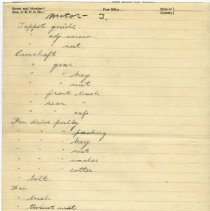 Street and Number
Post Office
State
Country
Motor - 3.
Tappet guide
" adj. screw
" " nut
Camshaft
" gear
" " key
" " nut
" front bush
" rear "
" " cap
Fan drive pulley
" " " packing
" " " key
" " " nut
" " " washer
" " " cotter
" belt
Fan
" bush
" thrust